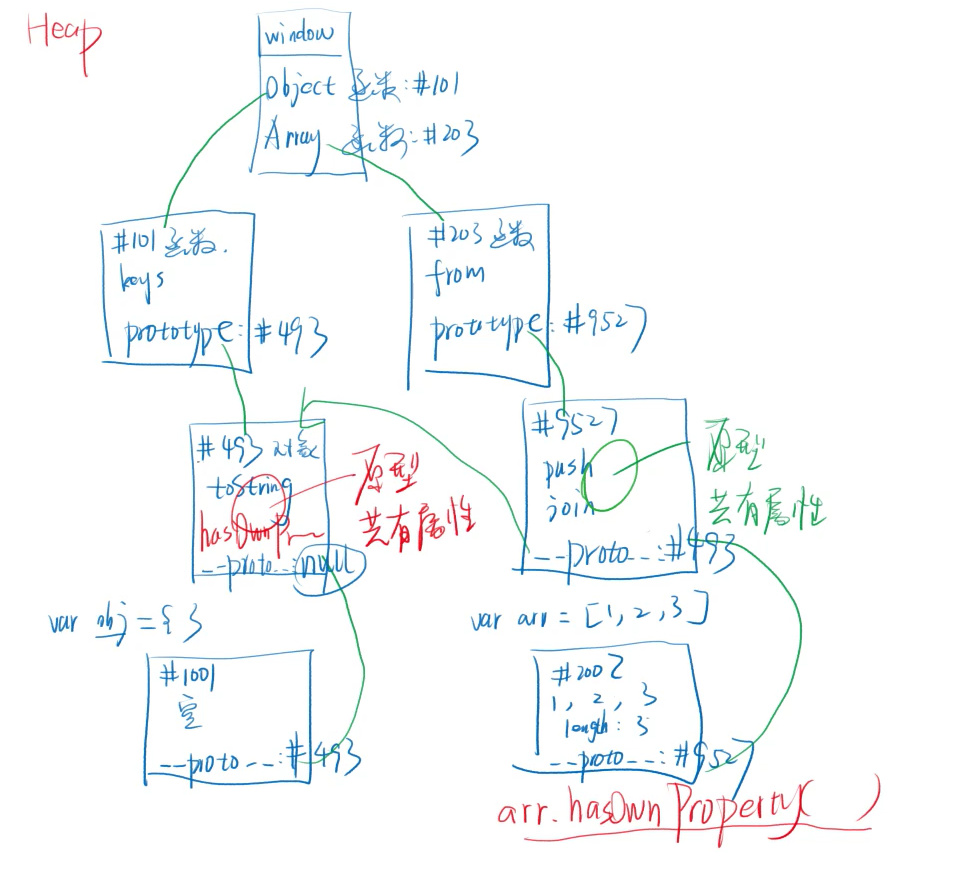 Heap
window
Object 函数:#101
Array 函数:#203
#101 函数.
keys
prototype:#493
#203 函数
from
prototype:#9527
#493 对象
toString
hasOwnPr
__proto__:null
原型
共有属性
#9527
push
join
__proto__:#493
原型
共有属性
var obj = { }
#1001
空
__proto__:#493
var arr = [1,2,3]
#2002
1, 2, 3
length: 3
__proto__:#9527
arr.hasOwnProperty( )